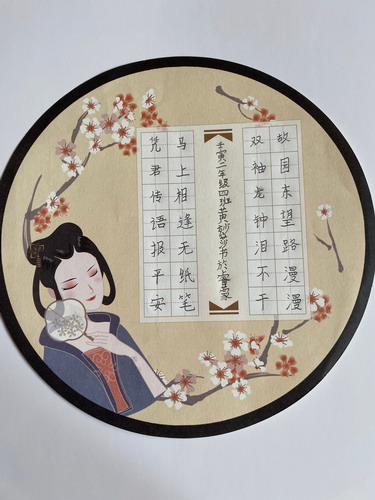 故园东望路漫漫
双袖龙钟泪不干
壬寅二年级四班黄妙莎书於
马上相逢无纸笔
凭君传语报平安